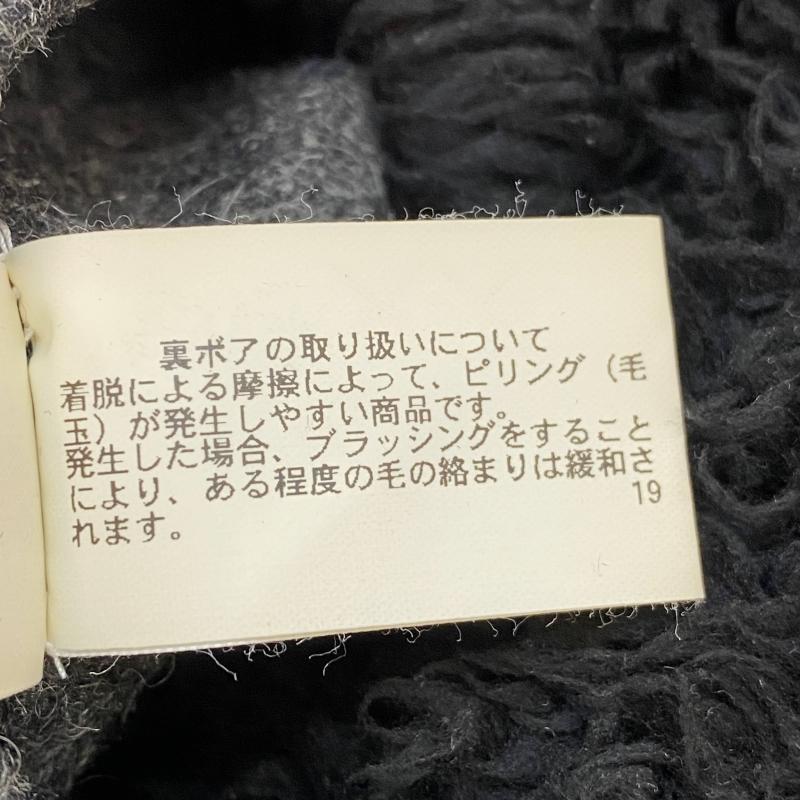 裏ボアの取り扱いについて
着脱による摩擦によって、ピリング（毛
玉）が発生しやすい商品です。
発生した場合、ブラッシングをすること
により、ある程度の毛の絡まりは緩和さ
れます。
19